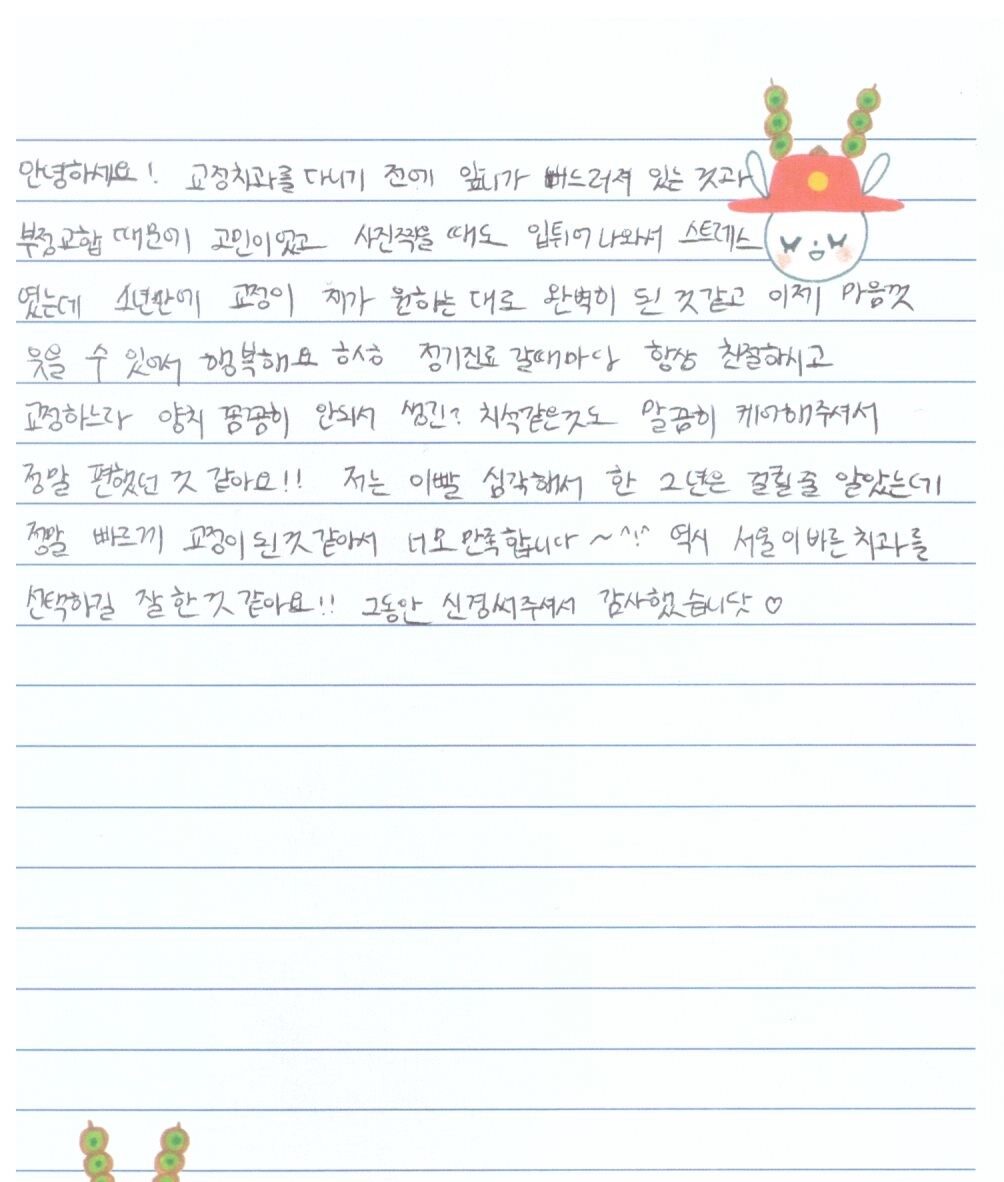 안녕하세요! 교정치과를 다니기 전에 앞니가 뻐드러져 있는 것과
부정교합 때문에 고민이었고 사진찍을 때도 입튀어나와서 스트레스
였는데 2년만에 교정이 제가 원하는 대로 완벽히 된 것 같고 이제 마음껏
웃을 수 있어서 행복해요 정기진료 갈때마다 항상 친절하시고
교정하느라 양치 꼼꼼히 안되서 생긴? 치석같은것도 말끔히 케어해주셔서
정말 편했던 것 같아요!! 저는 이빨 심각해서 한 년은 걸릴 줄 알았는데
정말 빠르게 교정이 된 것 같아서 너모 만족합니다 ~^!^ 역시 서울이바른치과를
선택하길 잘 한 것 같아요!! 그동안 신경써주셔서 감사했습니닷 ♡